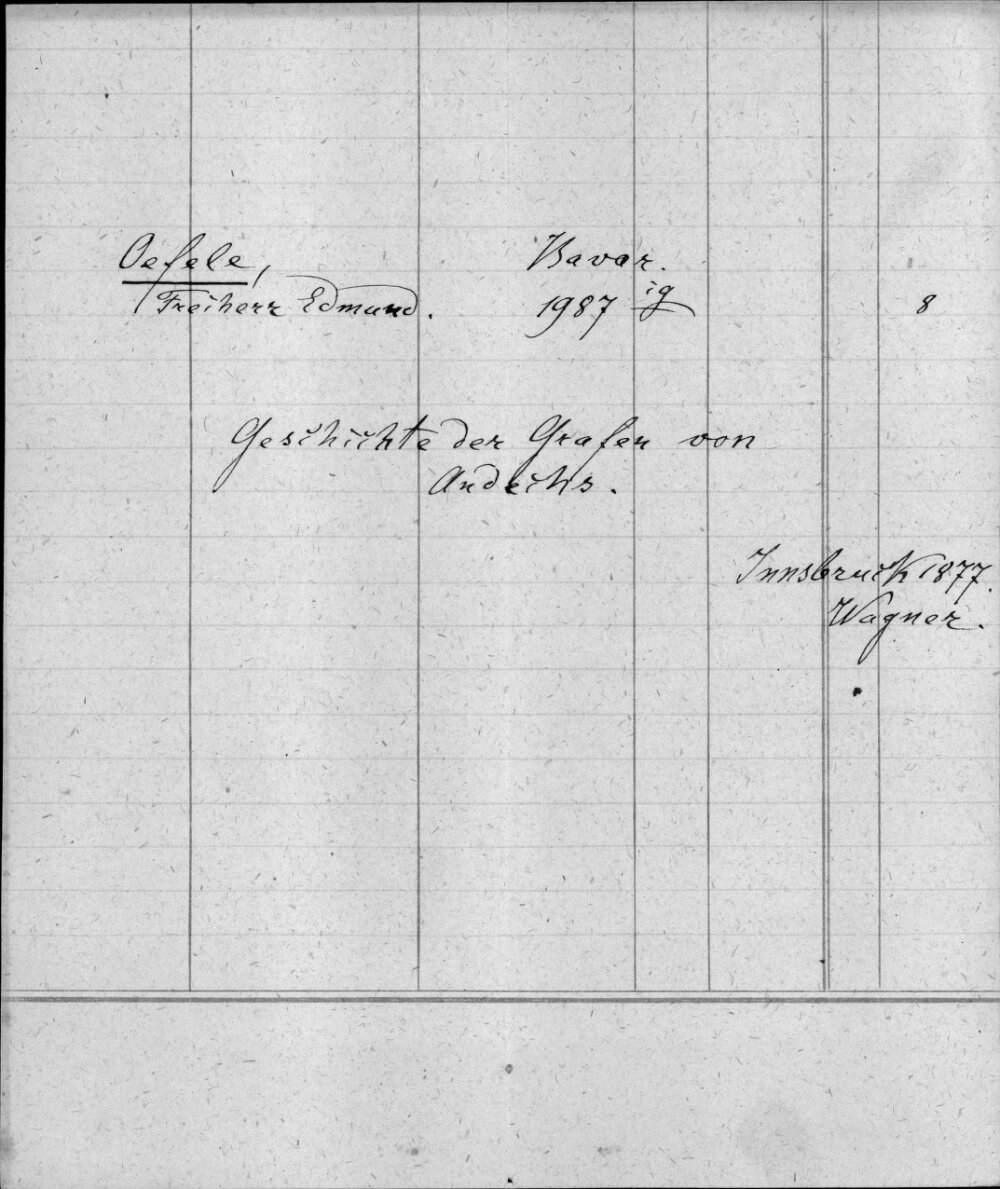 Oefele, Bavar.
Freiherr Edmund. 1987 ig 8
Geschichte der Grafen von
Andechs.
Innsbruck 1877.
Wagner.